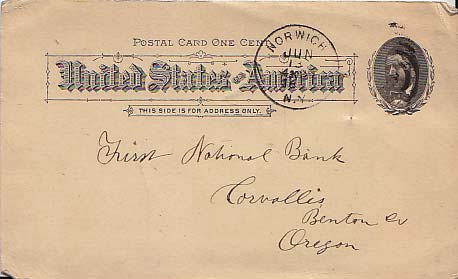 POSTAL CARD ONE CENT
United States of America
THIS SIDE IS FOR ADDRESS ONLY.
NORWICH
JUN
13
N.Y.
First National Bank
Corvallis
Benton Co
Oregon